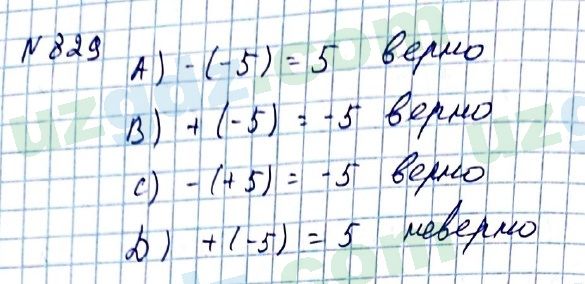 N 829
A) -(-5) = 5 верно
B) +(-5) = -5 верно
C) -(+5) = -5 верно
D) +(-5) = 5 неверно